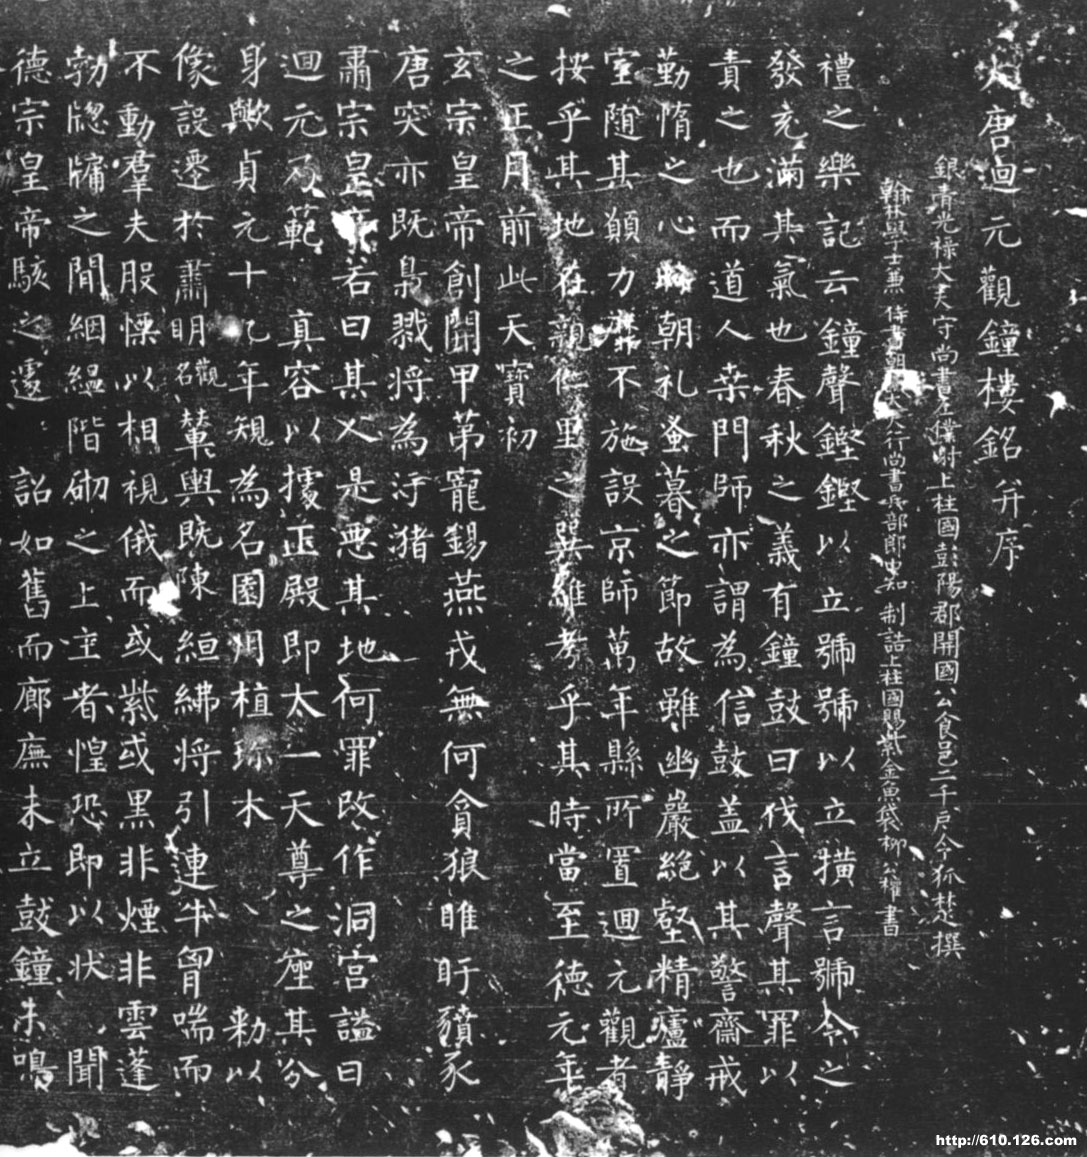 大唐迴元觀鐘樓銘并序
銀青光祿大夫守尚書左僕射上柱國彭陽郡開國公食邑二千戶令狐楚撰
翰林學士兼侍書朝大夫行尚書兵部郎中知制誥上柱國賜紫金魚袋柳公權書
禮之樂記云鐘聲鏗鏗以立號號以立橫言號令之
發充滿其氣也春秋之義有鐘鼓曰伐言聲其罪以
責之也而道人桒門師亦謂為信鼓蓋以其警齋戒
勤惰之心時朝礼蚤暮之節故雖幽巖絕壑精廬靜
室隨其願力靡不施設京師萬年縣所置迴元觀者
按乎其地在親仁里之巽維考乎其時當至德元年
之正月前此天寶初
玄宗皇帝創開甲第寵錫燕戎無何貪狼睢盱豶豕
唐突亦既梟戮將為汙猪
肅宗皇帝若曰其人是惡其地何罪改作洞宮謚曰
迴元乃範真容以據正殿即太一天尊之座其分
身歟貞元十九年規為名園用植珎木敕以
像設遷於肅明觀名輦輿既陳絙紼將引連牛胷喘而
不動羣夫股慄以相視俄而或紫或黑非煙非雲蓬
勃牕牖之間絪縕階砌之上主者惶恐即以狀聞
德宗皇帝駭之遽詔如舊而廊廡未立鼓鐘未鳴
http://610.126.com